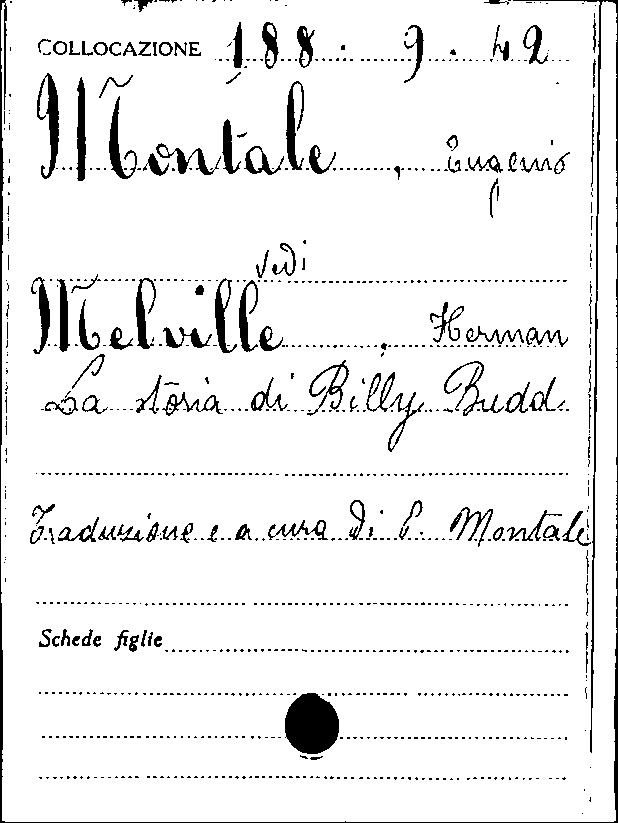 COLLOCAZIONE 188. 9. 42
Montale, Eugenio
vedi
Melville, Herman
La storia di Billy Budd
Traduzione e a cura di E. Montale
Schede figlie